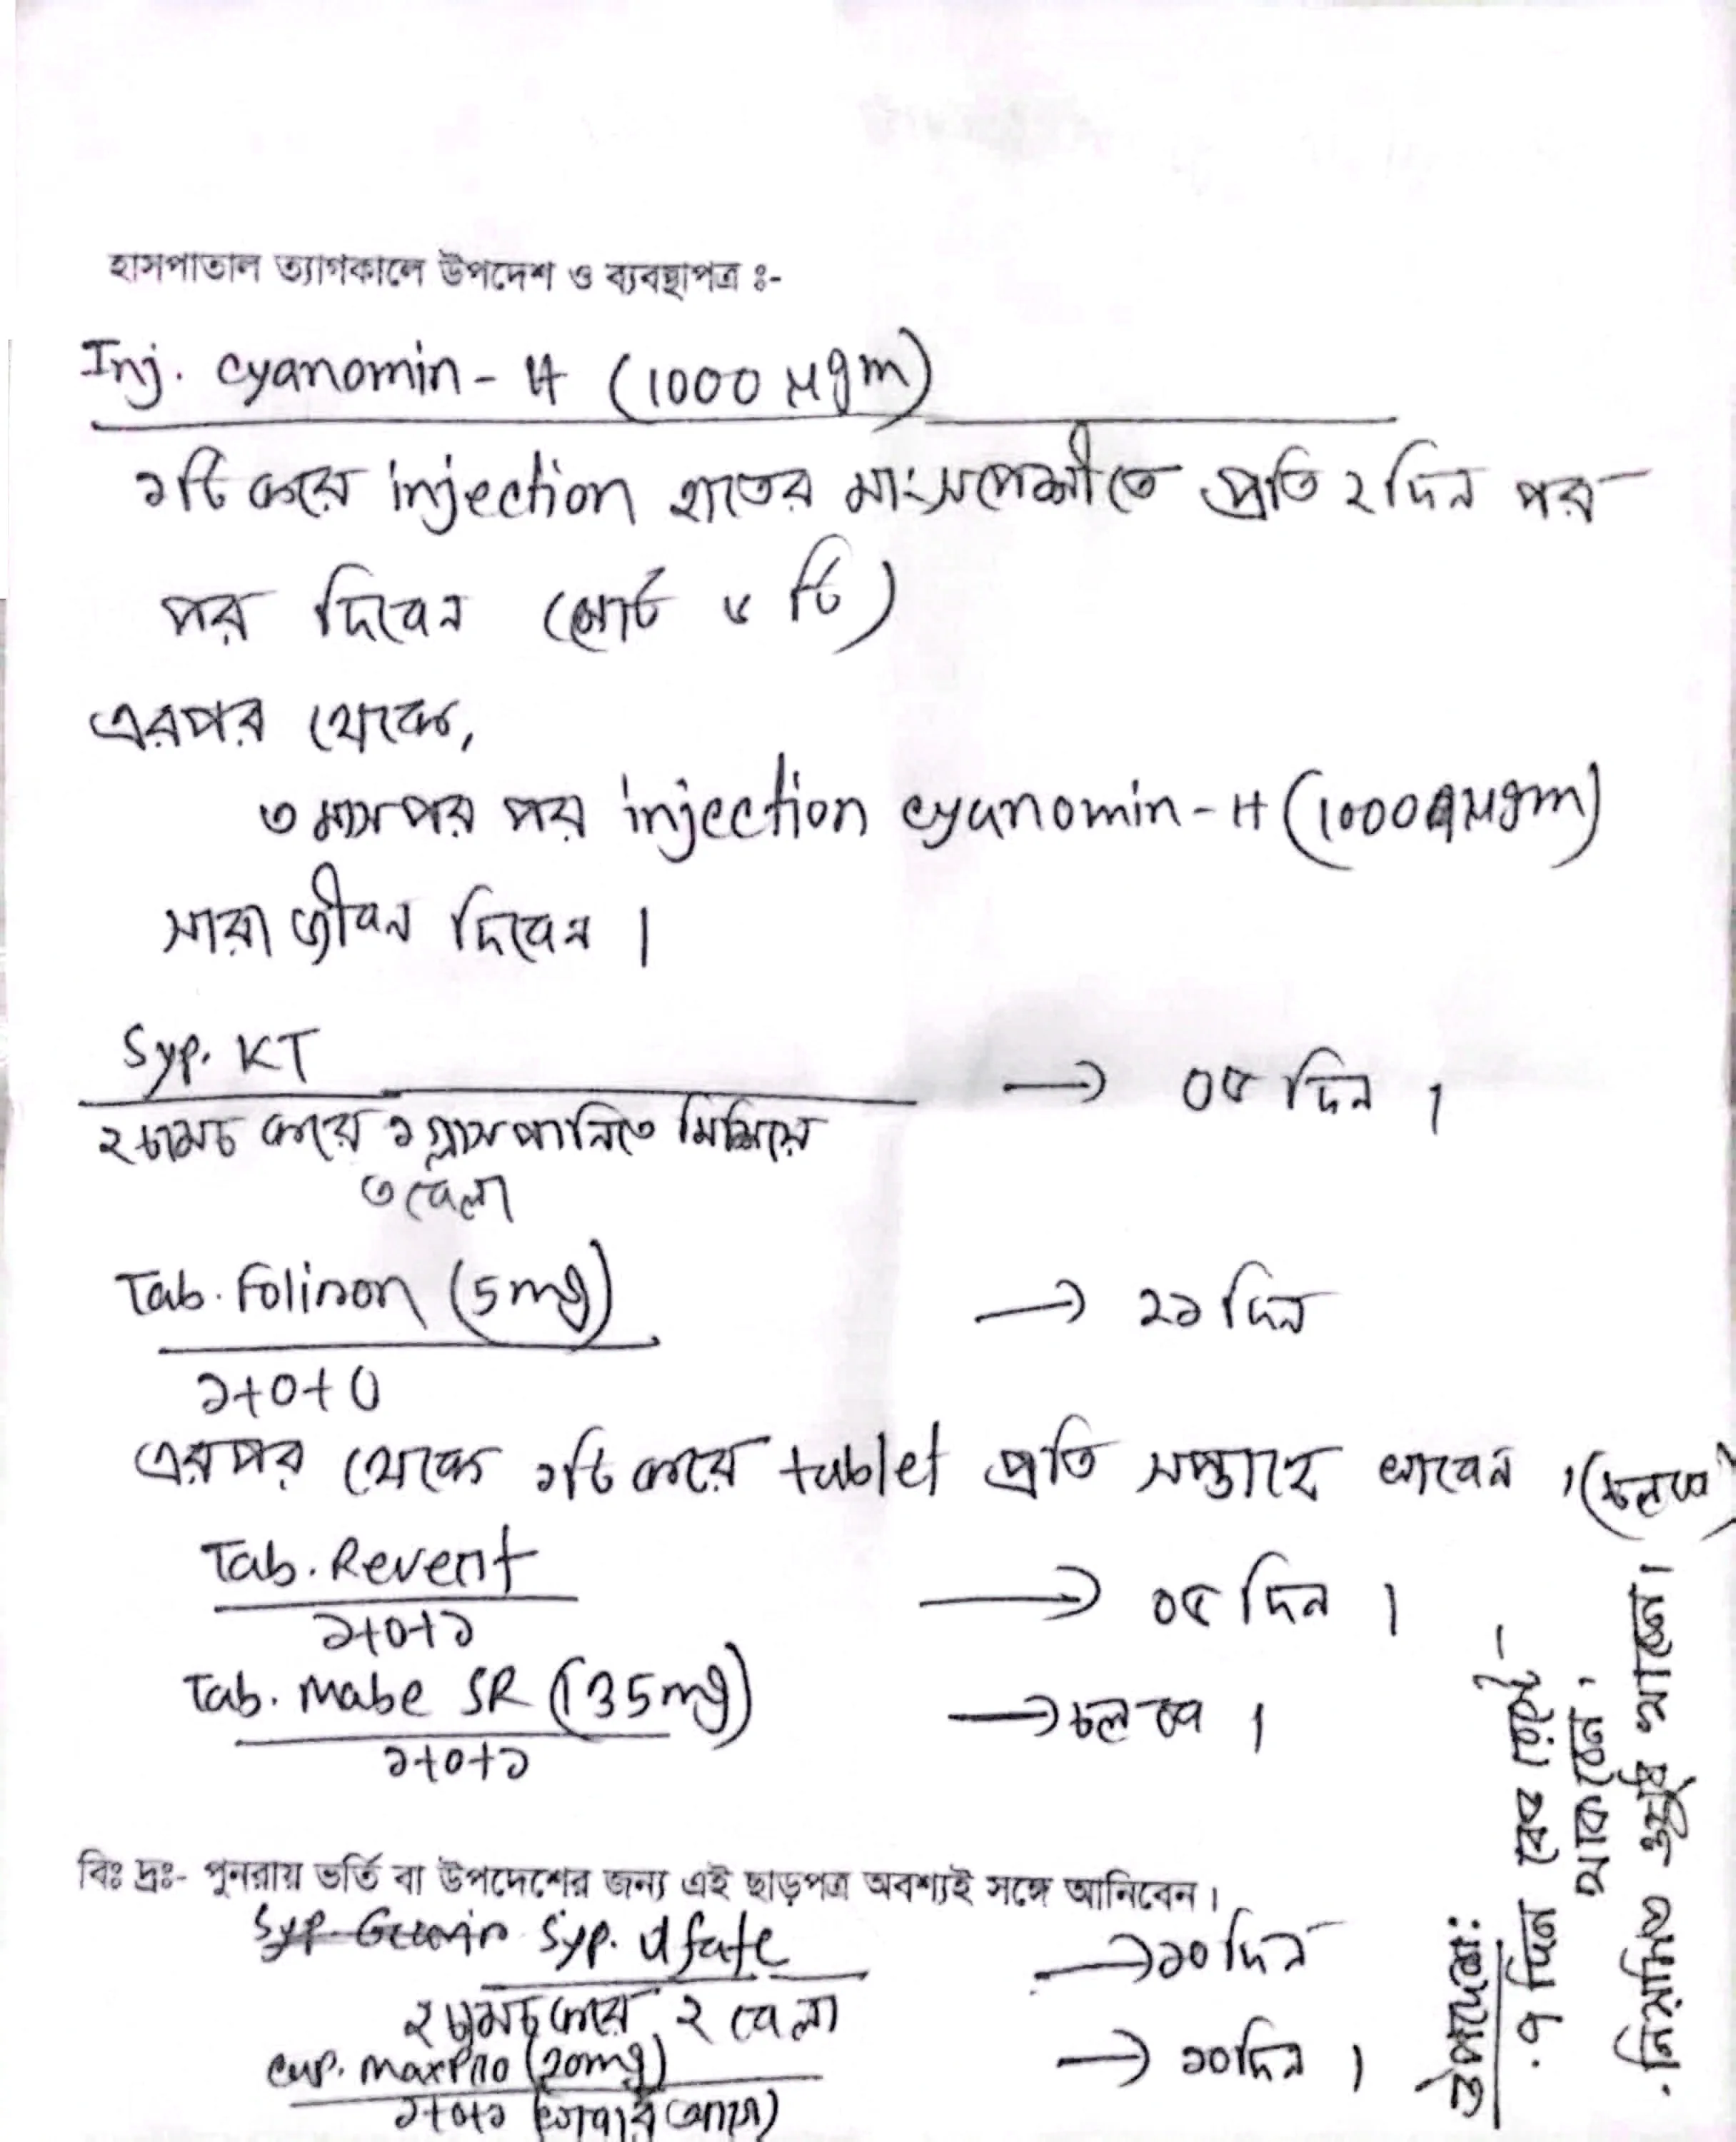 হাসপাতাল ত্যাগকালে উপদেশ ও ব্যবস্থাপত্র ঃ-
Inj. cyanomin - H (1000 μgm)
১টি করে injection হাতের মাংসপেশীতে প্রতি ২ দিন পর
পর দিবেন (মোট ৬ টি)
এরপর থেকে,
৩ মাস পর পর injection cyanomin - H (1000 μgm)
সারা জীবন দিবেন ।
Syp. KT → ০৫ দিন ।
২ চামচ করে ১ গ্লাস পানিতে মিশিয়ে
৩ বেলা
Tab. Folinon (5 mg) → ২১ দিন
১+০+০
এরপর থেকে ১টি করে tablet প্রতি সপ্তাহে খাবেন । (চলবে)
Tab. Revent → ০৫ দিন ।
১+০+১
Tab. Mabe SR (135 mg) → চলবে ।
১+০+১
বিঃ দ্রঃ- পুনরায় ভর্তি বা উপদেশের জন্য এই ছাড়পত্র অবশ্যই সঙ্গে আনিবেন ।
Syp. Ulfate → ১০ দিন
২ চামচ করে ২ বেলা
cap. Maxpro (20mg) → ১০ দিন ।
১+০+১ (খাবার আগে)
উপদেশ:
· ৭ দিন বেড রেস্টে
থাকবেন ।
· নিয়মিত ঔষধ খাবেন ।